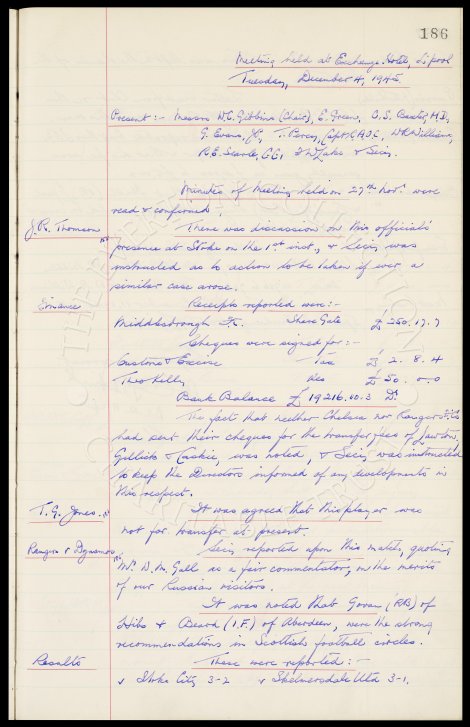 186
Meeting held at Exchange Hotel, L'pool
Tuesday, December 4, 1945
Present:- Messrs W.C. Gibbins (Chair), E. Green, C.S. Baxter, M.D.,
G. Evans, J.P., T. Percy, Capt. R.A.O.C., W.R. Williams,
R.E. Searle, CC, & Secy.
Minutes of Meeting held on 27th Novr. were
read & confirmed.
J.R. Thomson
There was discussion on this official's
presence at Stoke on the 1st inst., & Secy. was
instructed as to action to be taken if ever a
similar case arose.
Finance
Receipts reported were:-
Middlesbrough Fc. Share Gate £ 250. 17. 7
Cheques were signed for:-
Customs & Excise Tax £ 2. 8. 4
Theo Kelly £ 50. 0. 0
Bank Balance £ 19216. 10. 3 Dr.
The fact that neither Chelsea nor Rangers
had sent their cheques for the transfer fees of Lawton,
Gillick & Caskie, was noted, & Secy. was instructed
to keep the Directors informed of any developments in
this respect.
T.G. Jones.
It was agreed that this player was
not for transfer at present.
Rangers v Dynamos
Secy. reported upon this match, quoting
Mr. D.M. Gall as a fair commentator, on the merits
of our Russian visitors.
It was noted that Govan (RB) of
Hibs & Beard (I.F.) of Aberdeen, were the strong
recommendations in Scottish football circles.
Results
These were reported:-
v Stoke City 3-2 v Skelmersdale Utd 3-1.